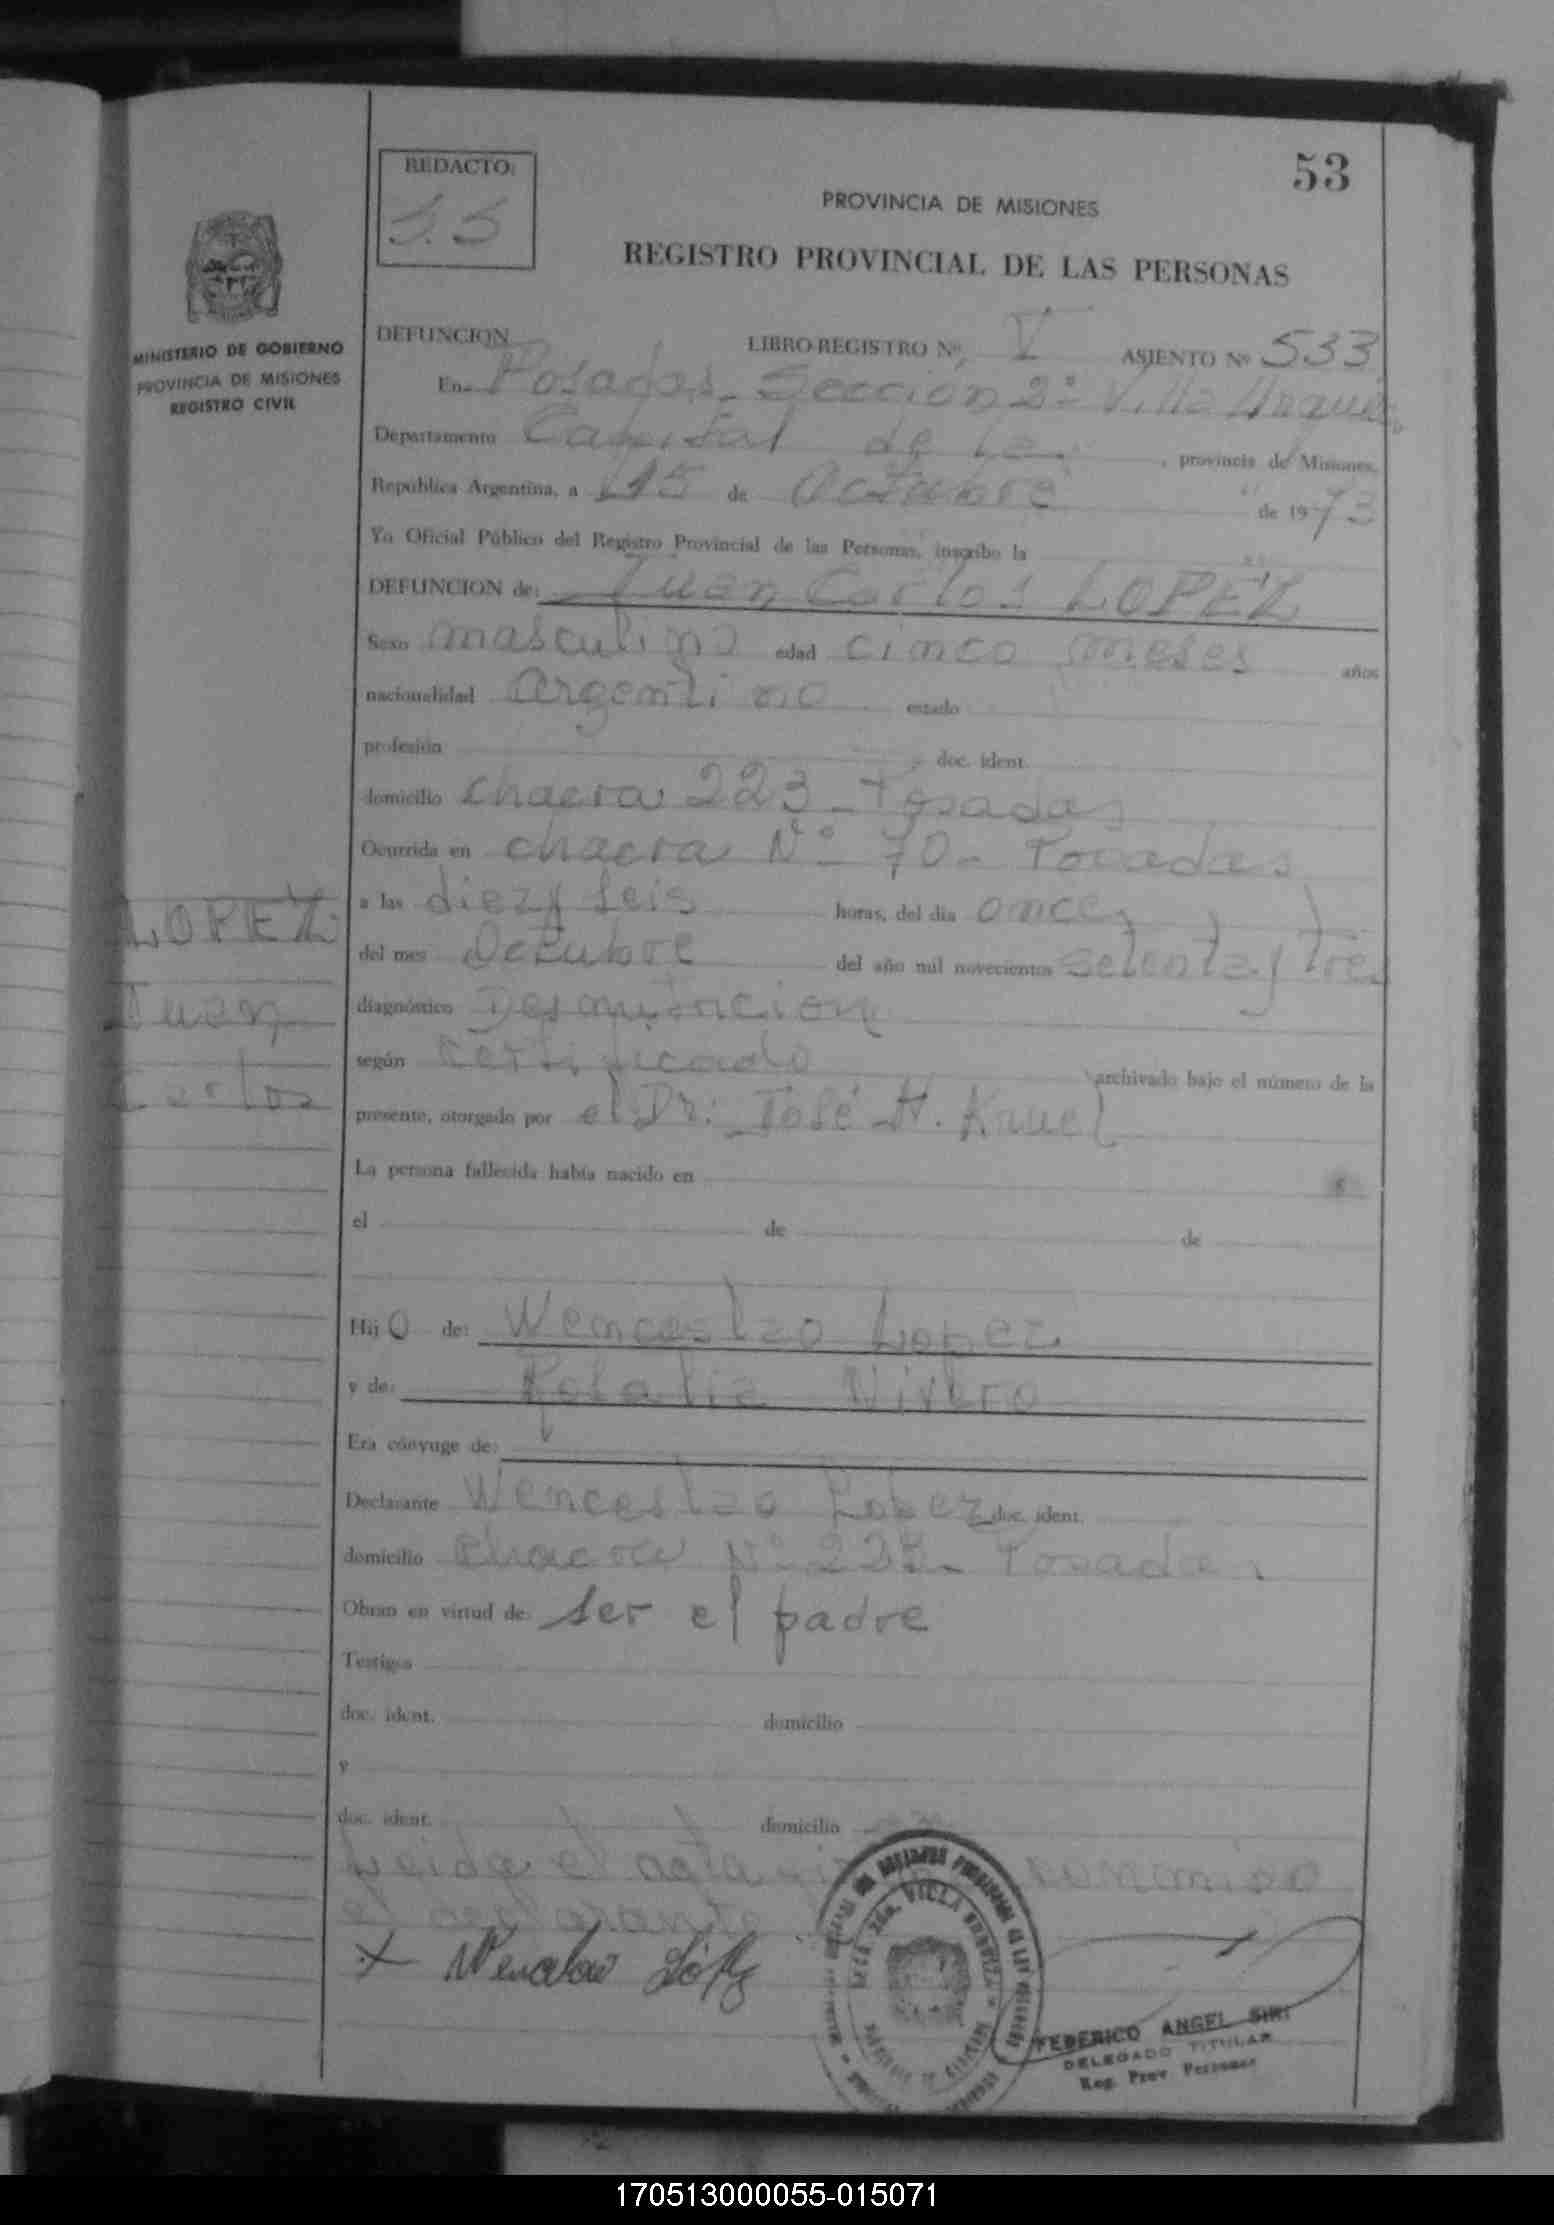 53
REDACTO:
S.S
PROVINCIA DE MISIONES
REGISTRO PROVINCIAL DE LAS PERSONAS
MINISTERIO DE GOBIERNO
PROVINCIA DE MISIONES
REGISTRO CIVIL
DEFUNCION LIBRO-REGISTRO Nº V ASIENTO Nº 533
En Posadas - Sección 2º Villa Urquiza
Departamento Capital de la , provincia de Misiones,
República Argentina, a 15 de Octubre de 1973
Yo Oficial Público del Registro Provincial de las Personas, inscribo la
DEFUNCION de: Juan Carlos LOPEZ
Sexo masculino edad cinco meses años
nacionalidad argentino estado
profesión doc. ident.
domicilio chacra 223 - Posadas
Ocurrida en chacra Nº 70 - Posadas
a las diez y seis horas, del día once
del mes Octubre del año mil novecientos setenta y tres
diagnóstico Desnutricion
según certificado archivado bajo el número de la
presente, otorgado por el Dr. José H. Kruel
La persona fallecida había nacido en
el de de
LOPEZ
Juan
Carlos
Hijo de: Wenceslao Lopez
y de: Rosalia Nivero
Era cónyuge de:
Declarante Wenceslao Lopez doc. ident.
domicilio chacra Nº 223 - Posadas
Obran en virtud de ser el padre
Testigos
doc. ident. domicilio
y
doc. ident. domicilio
Leida el acta
el declarante
x Wenceslao López
2da. VILLA URQUIZA
FEDERICO ANGEL SIRI
DELEGADO TITULAR
Reg. Prov. Personas
170513000055-015071